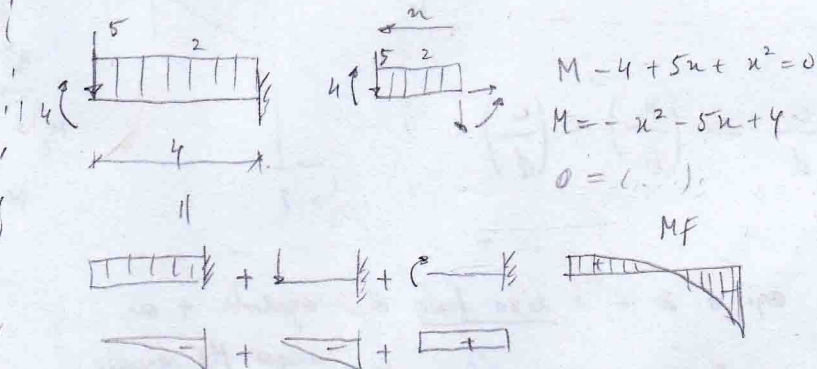 5
2
4
4
x
5 2
4
M - 4 + 5x + x² = 0
M = - x² - 5x + 4
0 = (...).
=
+ +
MF
+
- + - + +